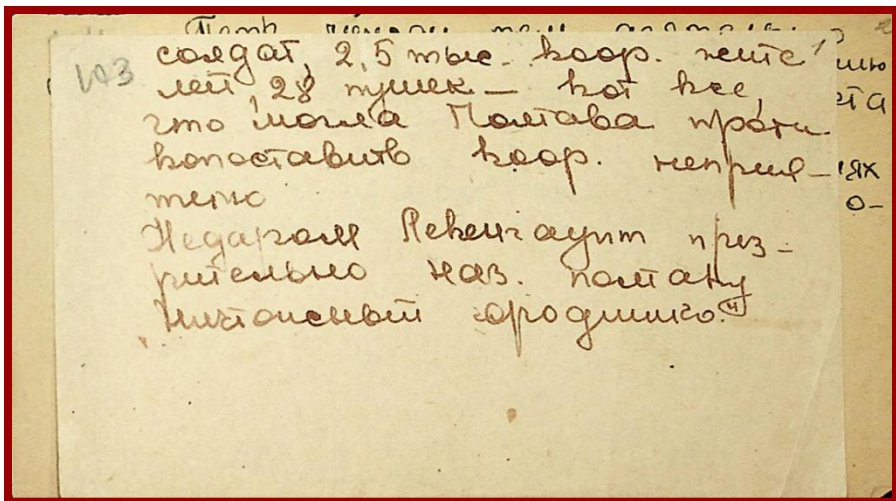 103
солдат, 2,5 тыс. воор. жите
лей, 28 пушек — вот все,
что могла Полтава проти
вопоставить воор. неприя-
телю
Недаром Левенгаупт през-
рительно наз. полтаву
"ничтожный городишко."
ях
о-